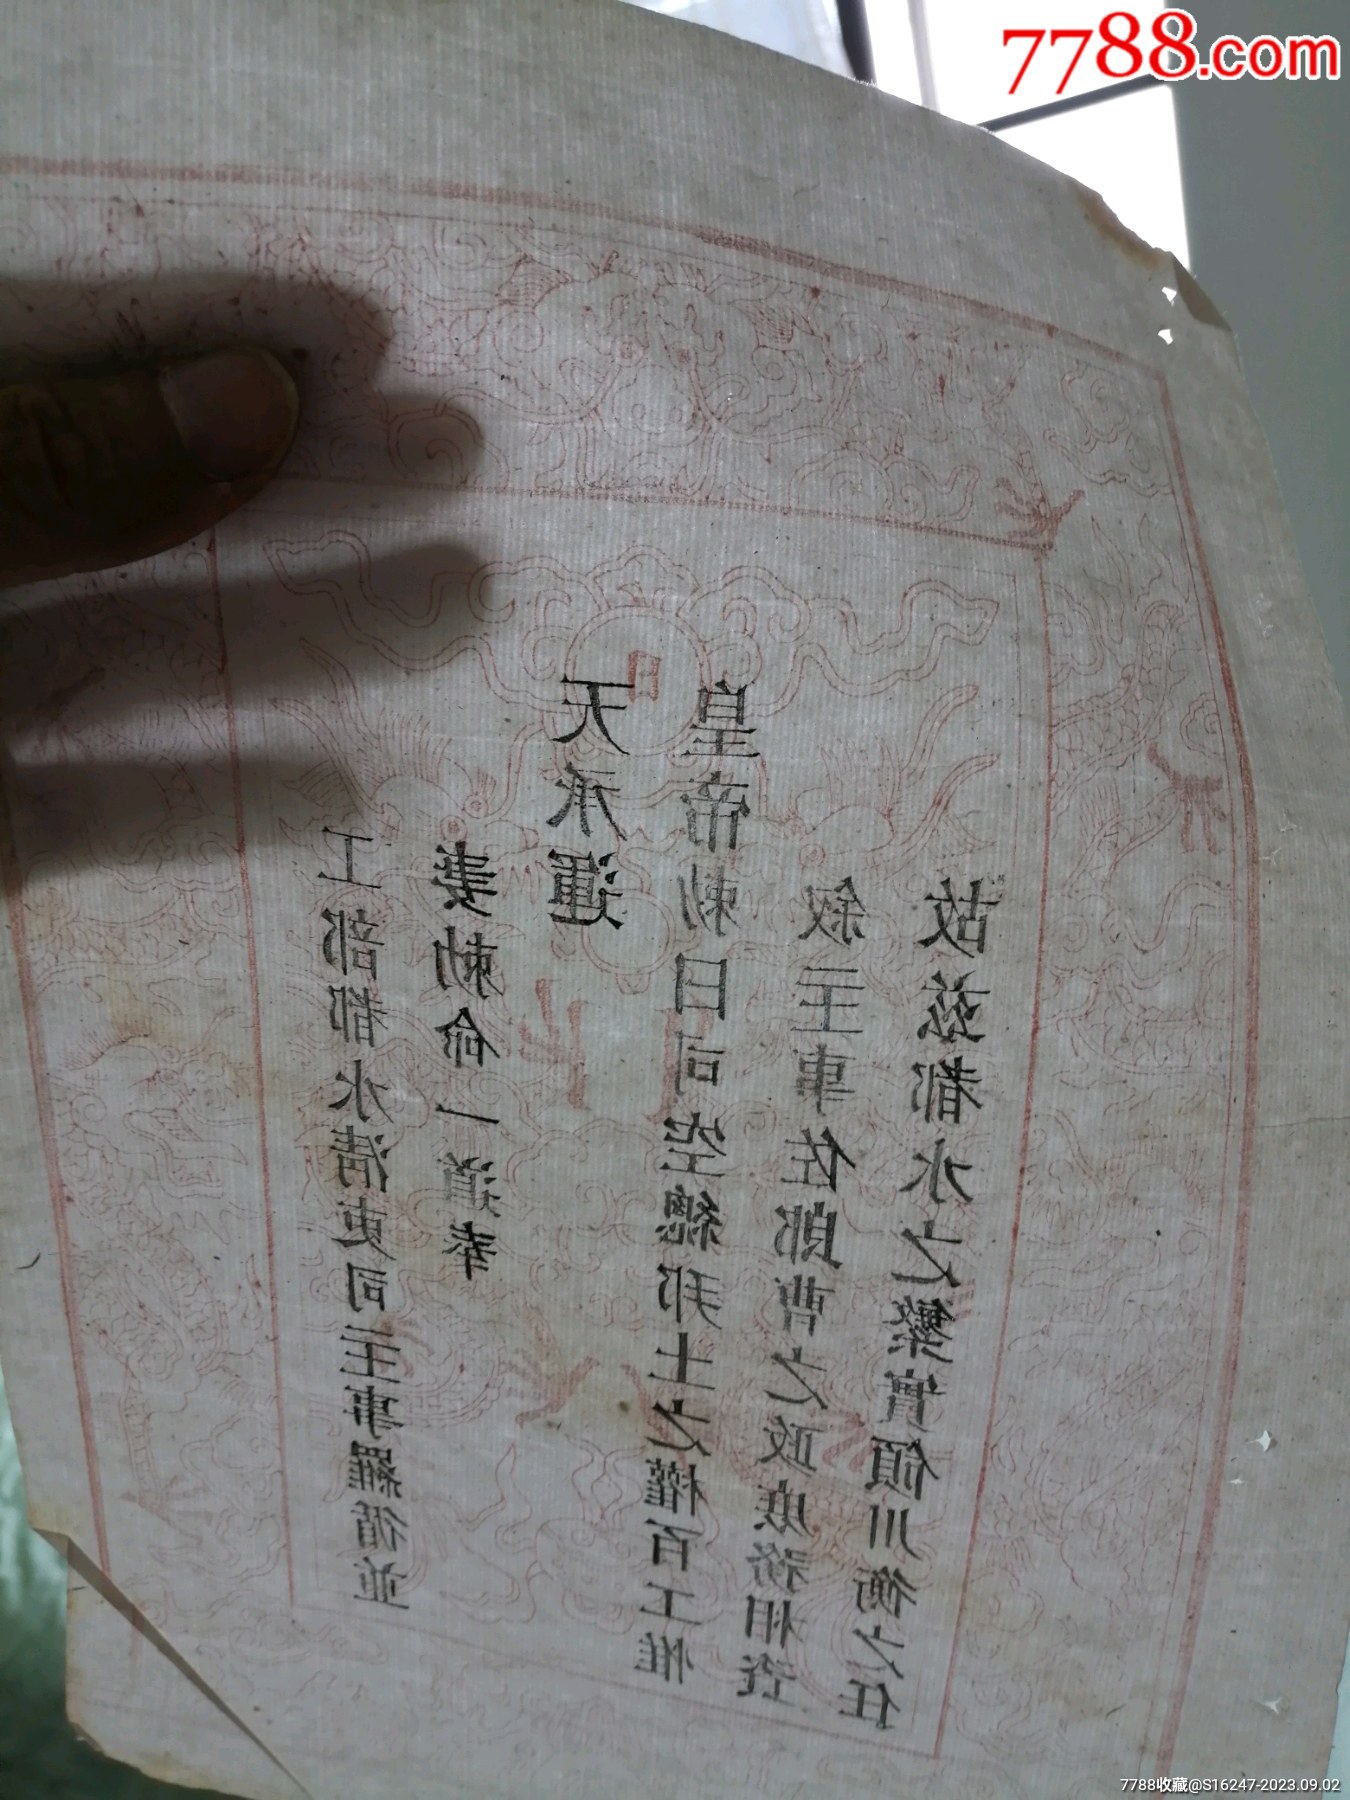 7788.com
工部都水清吏司主事羅循並
妻勅命一道奉
天承運
皇帝勅曰司空總邦土之權百工惟
叙主事佐郎曹之政庶務相資
故茲都水之繁實領川衡之任
7788收藏@S16247-2023.09.02